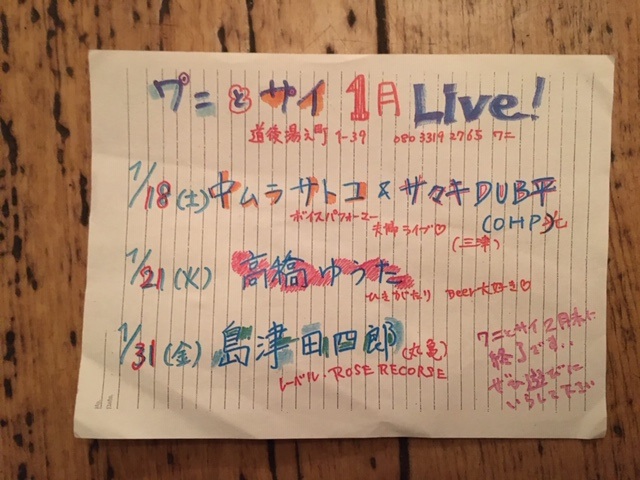 ワニとサイ 1月 Live!
道後湯之町 1-39 080 3319 2765 ワニ
1/18(土) 中ムラサトコ & ササキDUB平
ボイスパフォーマー
(OHP)光
夫婦ライブ♡
(三津)
1/21(火) 高橋ゆうた
ひきがたり Beer大好き♡
1/31(金) 島津田四郎(丸亀)
レーベル・ROSE RECORSE
ワニとサイ2月末に
終了です!!
ぜひ遊びに
いらして下さい
No.
Date